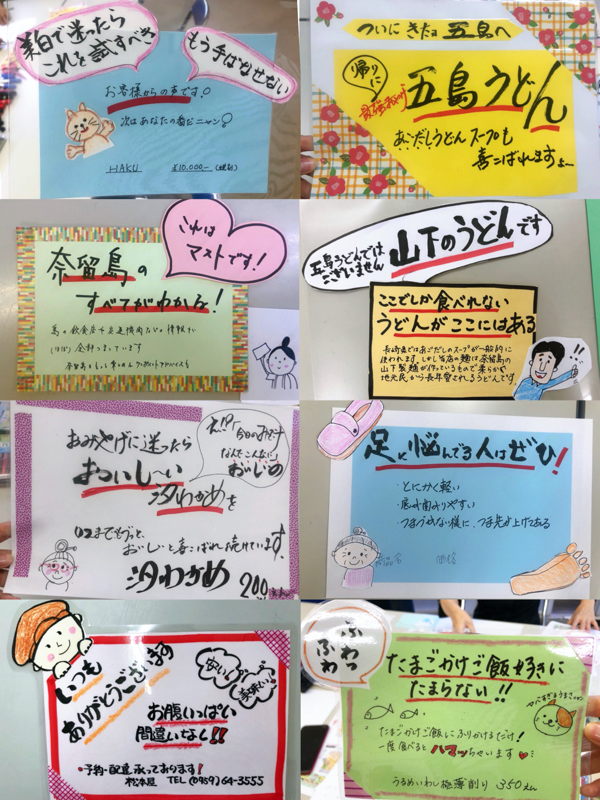 美白で迷ったら
これを試すべき
もう手ばなせない
お客様からの声です!
次はあなたの番だニャン♪
HAKU ¥10,000- (税別)
ついに きたヨ 五島へ
帰りに
五島うどん
あごだしうどん スープも
喜こばれますよ~
これは
マストです!
奈留島の
すべてがわかる!
島の飲食店や交通機関などの情報を
(ほぼ)全料
五島うどんでは
ございません
山下のうどんです
ここでしか食べれない
うどんがここにはある
長崎県ではあごだしのスープが一般的に
使われます。しかし当店の麺は奈留島の
山下製麺が作っているもので柔らかく
地元民から長年愛されるうどんです
おみやげに迷ったら
おいし~い
汐わかめを
えっ!?
今日のみそ汁
なんでこんなに
おいしいの
までもずっと
おいしいと喜こばれ続けています。
汐わかめ 200
足に悩んでる人はぜひ!
・とにかく軽い
・底が曲りやすい
・つまづかない様に、つま先が上げてある
商品名 価格
いつも
ありがとうございます
安い!
美味い!
お腹いっぱい
間違いなし!!
・予約・配達承っております!
松本屋 TEL (0959)64-3555
ふわっ
ふわ
たまごかけご飯好きに
たまらない!!
たまごかけご飯にふりかけるだけ!
一度食べるとハマッちゃいます♥
うるめいわし極薄削り 350えん